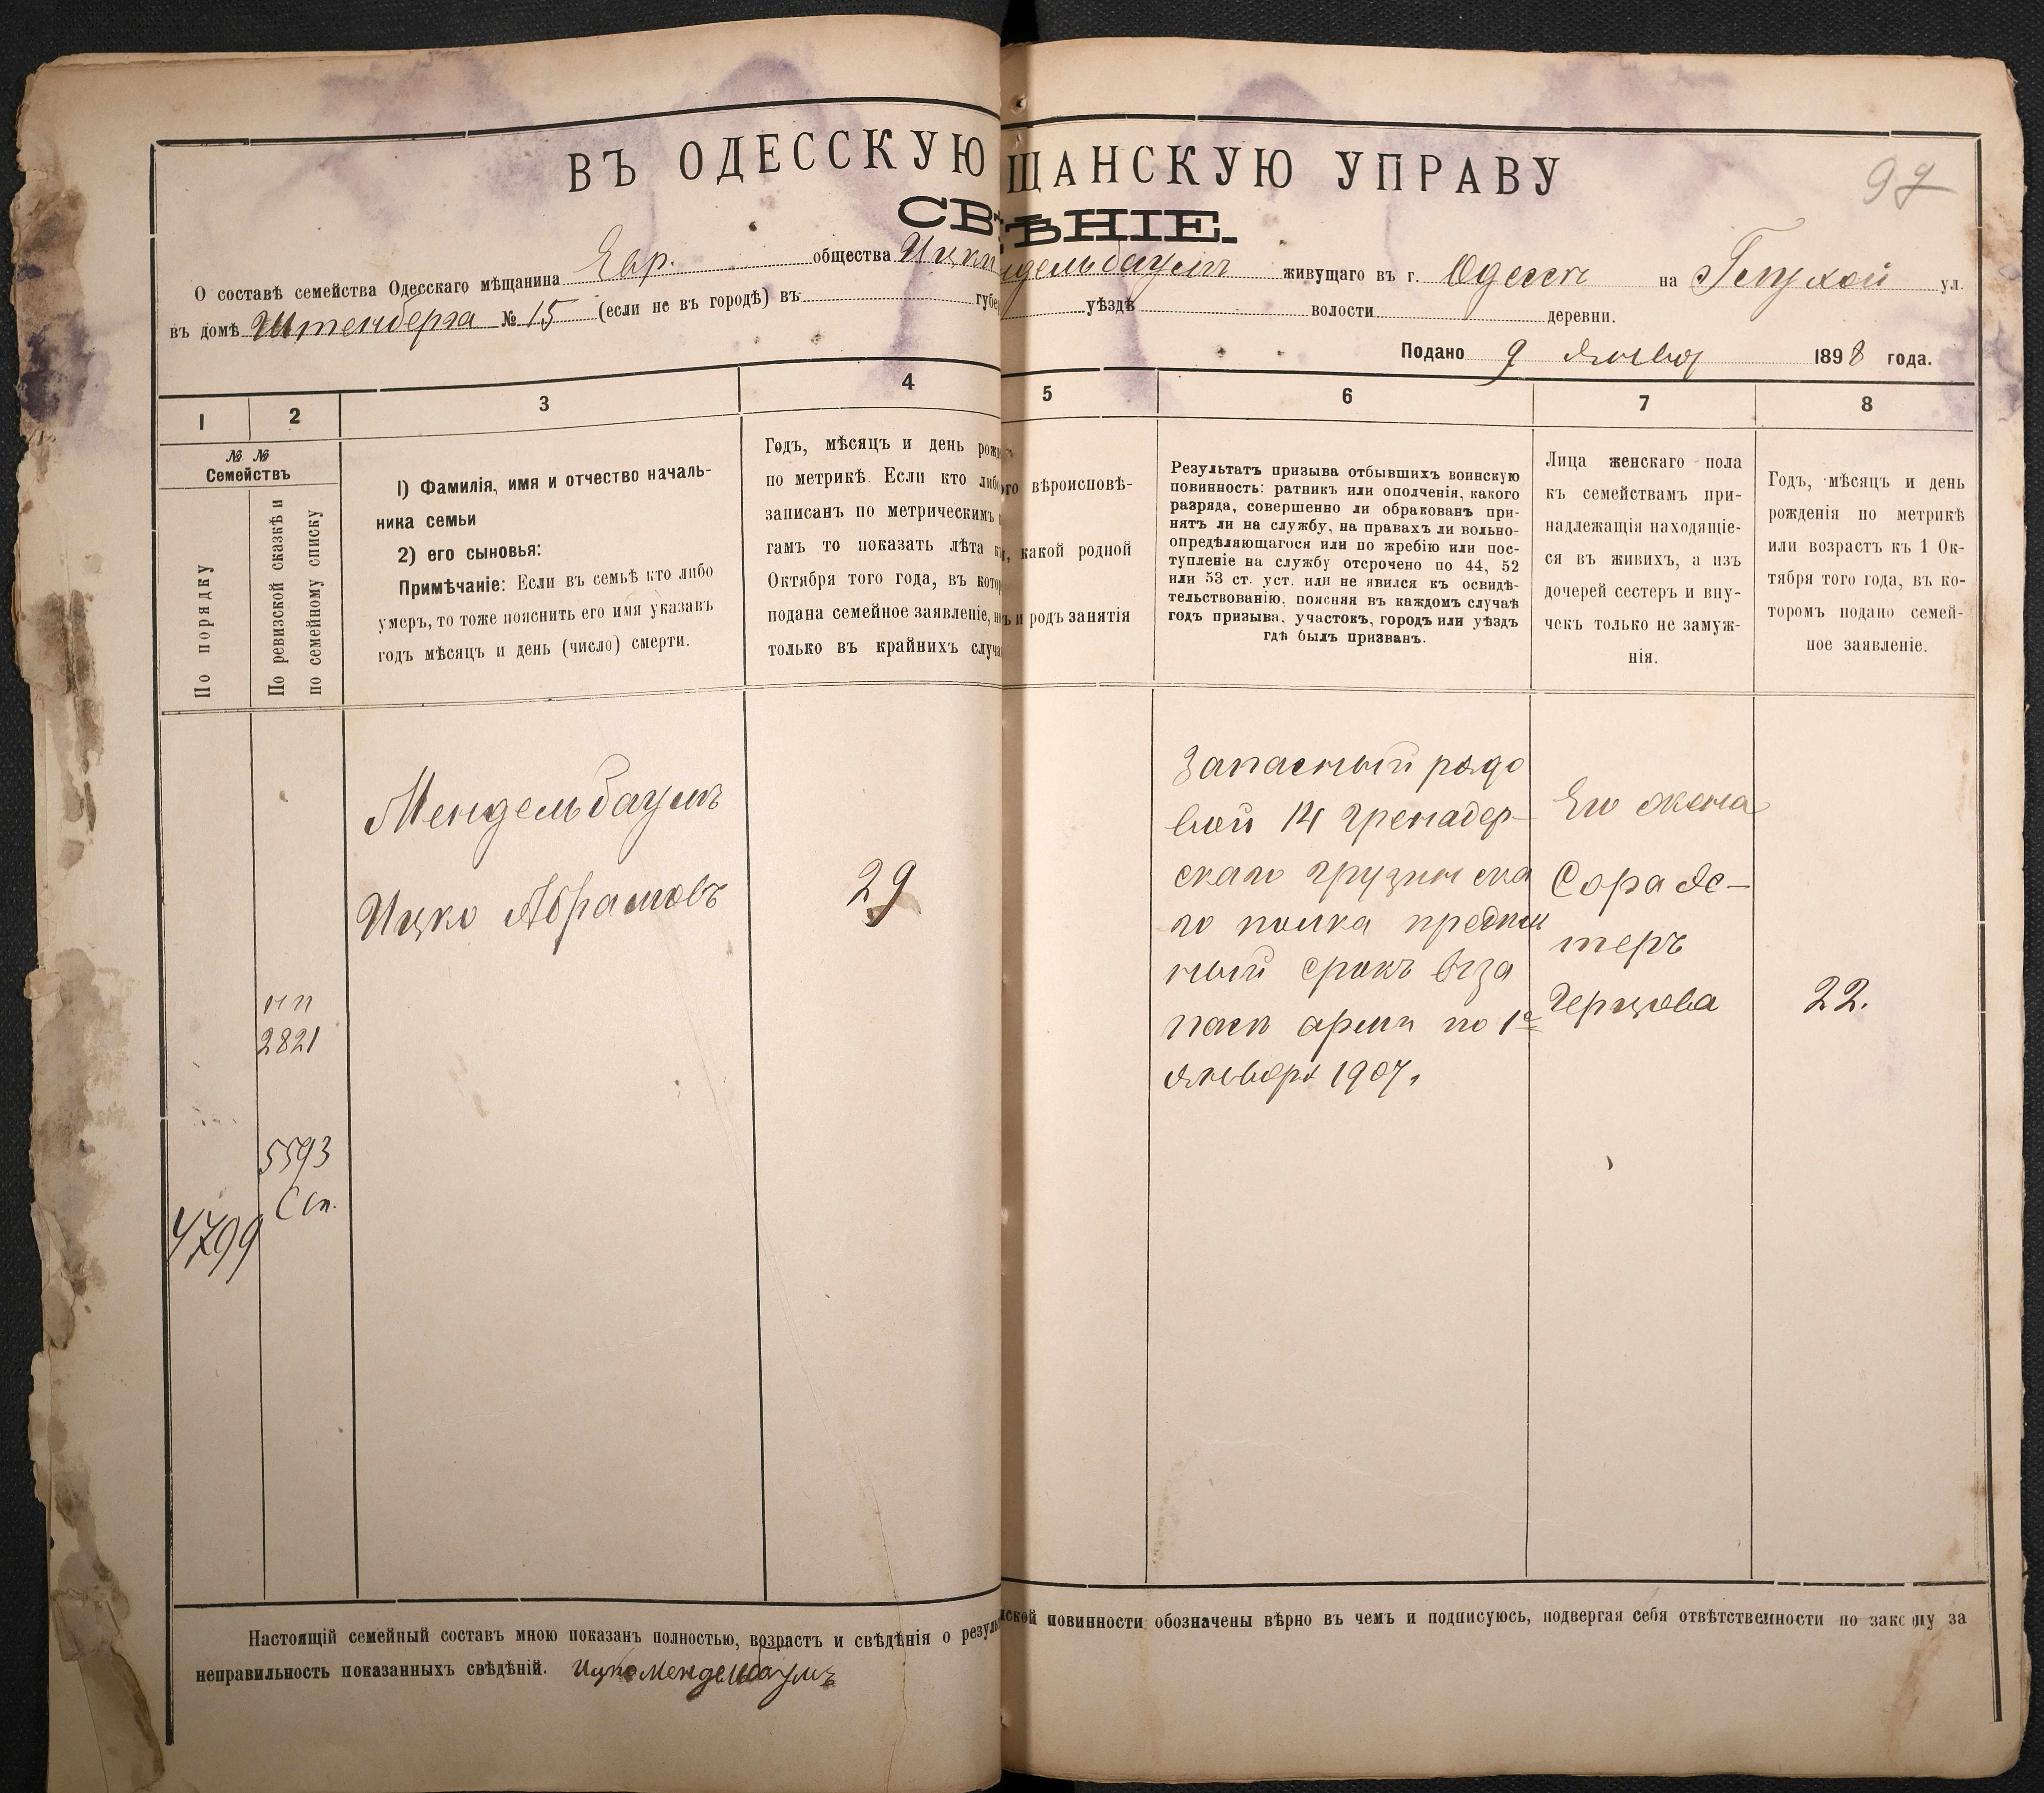 97
ВЪ ОДЕССКУЮ ЩАНСКУЮ УПРАВУ
СВѢНІЕ.
О составѣ семейства Одесскаго мѣщанина Евр. общества Ицки ндельбаумъ живущаго въ г. Одессѣ на Глухой ул.
въ домѣ Штенберга № 15 (если не въ городѣ) въ губе уѣздѣ волости деревни.
Подано 9 Января 1898 года.
1 2 3 4 5 6 7 8
№ №
Семействъ
По порядку
По ревизской сказкѣ и
по семейному списку
1) Фамилія, имя и отчество началь-
ника семьи
2) его сыновья:
Примѣчаніе: Если въ семьѣ кто либо
умеръ, то тоже пояснить его имя указавъ
годъ мѣсяцъ и день (число) смерти.
Годъ, мѣсяцъ и день рожд
по метрикѣ. Если кто либо
записанъ по метрическимъ
гамъ то показать лѣта к
Октября того года, въ котор
подана семейное заявленіе, но
только въ крайнихъ случа
го вѣроисповѣ-
, какой родной
ъ и родъ занятія
Результатъ призыва отбывшихъ воинскую
повинность: ратникъ или ополченія, какого
разряда, совершенно ли обракованъ при-
нятъ ли на службу, на правахъ ли вольно-
опредѣляющагося или по жребію или пос-
тупленіе на службу отсрочено по 44, 52
или 53 ст. уст. или не явился къ освидѣ-
тельствованію, поясняя въ каждомъ случаѣ
годъ призыва, участокъ, городъ или уѣздъ
гдѣ былъ призванъ.
Лица женскаго пола
къ семействамъ при-
надлежащія находящіе-
ся въ живихъ, а изъ
дочерей сестеръ и вну-
чекъ только не замуж-
нія.
Годъ, мѣсяцъ и день
рожденія по метрикѣ
или возрастъ къ 1 Ок-
тября того года, въ ко-
торомъ подано семей-
ное заявленіе.
4799
нп
2821
5593
Сп.
Мендельбаумъ
Ицко Абрамовъ
29
Запасный рядо
вой 14 гренадер-
скаго грузинска
го полка
ный срокъ въ за
пасѣ арміи по 1е
января 1907,
Его жена
Сора Эс-
теръ
Герцова
22.
Настоящій семейный составъ мною показанъ полностью, возрастъ и свѣдѣнія о резуль нской повинности обозначены вѣрно въ чемъ и подписуюсь, подвергая себя отвѣтственности по закону за
неправильность показанныхъ свѣдѣній. Ицко Мендельбаумъ